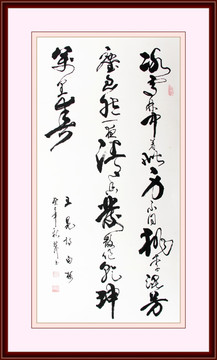 冰雪林中著此身不同桃李混芳
塵忽然一夜清香發散作乾坤
萬里春
王冕诗白梅